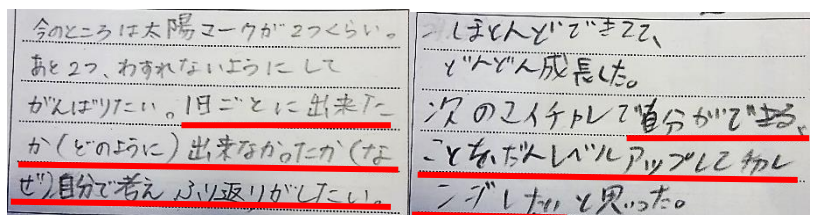 今のところは太陽マークが2つくらい。
あと2つ、わすれないようにして
がんばりたい。1日ごとに出来た
か(どのように)出来なかったか(な
ぜ)自分で考えふり返りがしたい。
ほとんどできてて、
どんどん成長した。
次のマイチャレで自分ができる、
ことを、だんレベルアップしてチャレ
ンジしたいと思った。